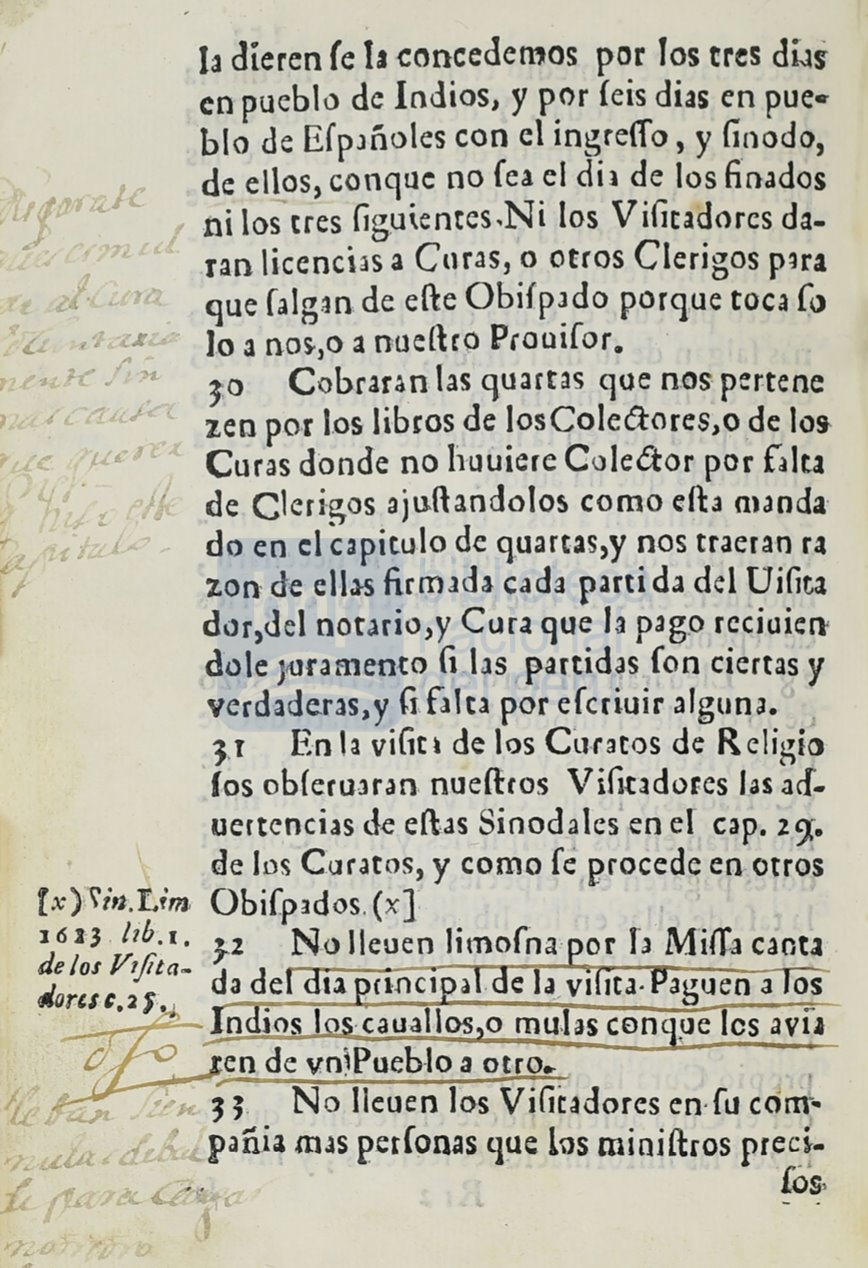 la dieren ſe la concedemos por los tres dias
en pueblo de Indios, y por ſeis dias en pue-
blo de Eſpañoles con el ingreſſo, y ſinodo,
de ellos, conque no ſea el dia de los finados
ni los tres ſiguientes. Ni los Viſitadores da-
ran licencias a Curas, o otros Clerigos para
que ſalgan de eſte Obiſpado porque toca ſo
lo a nos, o a nueſtro Prouiſor.
30 Cobraran las quartas que nos pertene
zen por los libros de los Colectores, o de los
Curas donde no huuiere Colector por falta
de Clerigos ajuſtandolos como eſta manda
do en el capitulo de quartas, y nos traeran ra
zon de ellas firmada cada partida del Uiſita
dor, del notario, y Cura que la pago reciuien
dole juramento ſi las partidas ſon ciertas y
verdaderas, y ſi falta por eſcriuir alguna.
31 En la viſita de los Curatos de Religio
ſos obſeruaran nueſtros Viſitadores las ad-
uertencias de eſtas Sinodales en el cap. 29.
de los Curatos, y como ſe procede en otros
Obiſpados. (x]
32 No lleuen limoſna por la Miſſa canta
da del dia principal de la viſita. Paguen a los
Indios los cauallos, o mulas conque los avia
ren de vn Pueblo a otro.
33 No lleuen los Viſitadores en ſu com-
pañia mas perſonas que los miniſtros preci-
ſos
[x) Sin. Lim
1613 lib. 1.
de los Viſita-
dores c. 25.
al Cura
sin
causa
que
este
Capitulo
mula
para